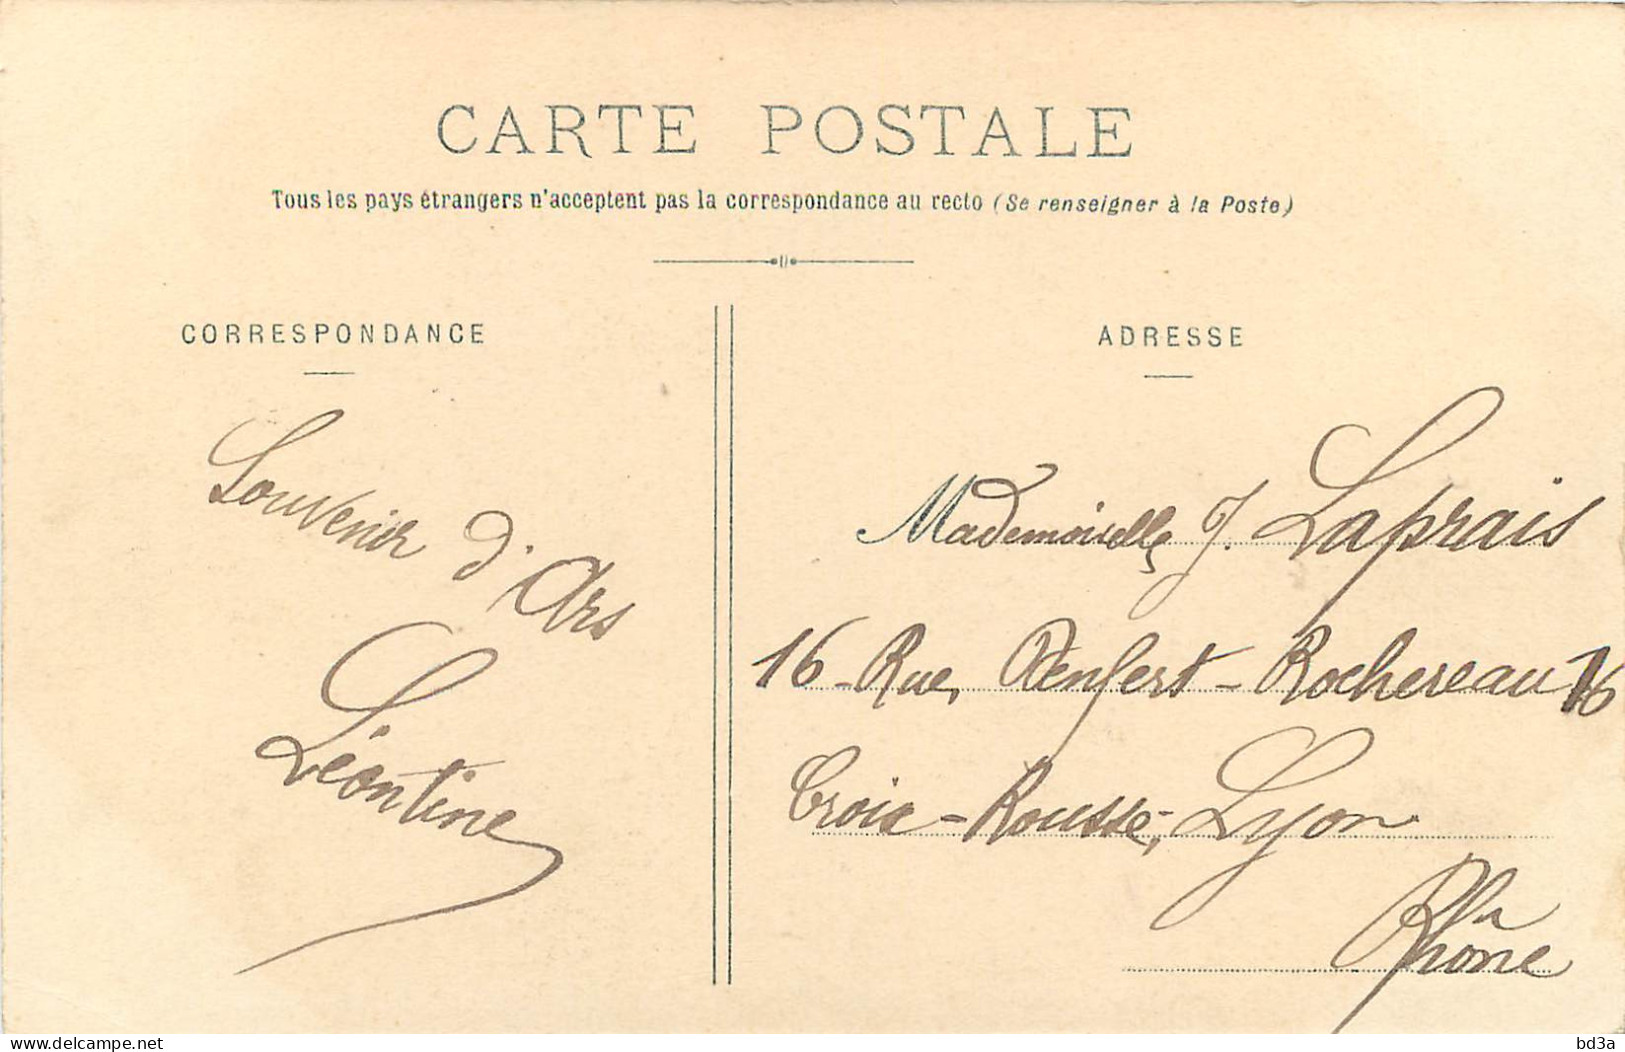 CARTE POSTALE
Tous les pays étrangers n'acceptent pas la correspondance au recto (Se renseigner à la Poste)
CORRESPONDANCE
Souvenir d'Ars
Léontine
ADRESSE
Mademoiselle J. Laprais
16 - Rue Denfert-Rochereau 16
Croix-Rousse, Lyon
Rhône
www.delcampe.net
bd3a